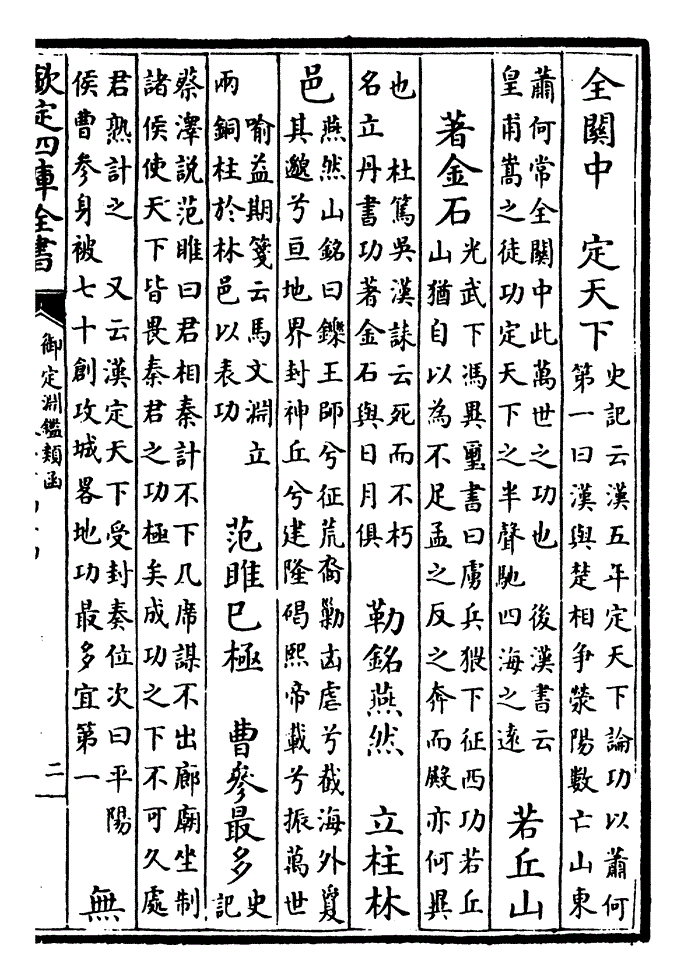 全關中　定天下
史記云漢五年定天下論功以蕭何
第一曰漢與楚相爭滎陽數亡山東
蕭何常全關中此萬世之功也　後漢書云
皇甫嵩之徒功定天下之半聲馳四海之逺
若丘山
著金石
光武下馮異璽書曰虜兵猥下征西功若丘
山猶自以為不足孟之反之奔而殿亦何異
也　杜篤吳漢誄云死而不朽
名立丹書功著金石與日月俱
勒銘燕然　立柱林
邑
燕然山銘曰鑠王師兮征荒裔勦凶虐兮截海外夐
其邈兮亘地界封神丘兮建隆碣熙帝載兮振萬世
喻益期箋云馬文淵立
兩銅柱於林邑以表功
范雎已極　曹參最多
史
記
蔡澤説范雎曰君相秦計不下几席謀不出廊廟坐制
諸侯使天下皆畏秦君之功極矣成功之下不可久處
君熟計之　又云漢定天下受封奏位次曰平陽
侯曹參身被七十創攻城畧地功最多宜第一
無
欽定四庫全書
御定淵鑑類函
二